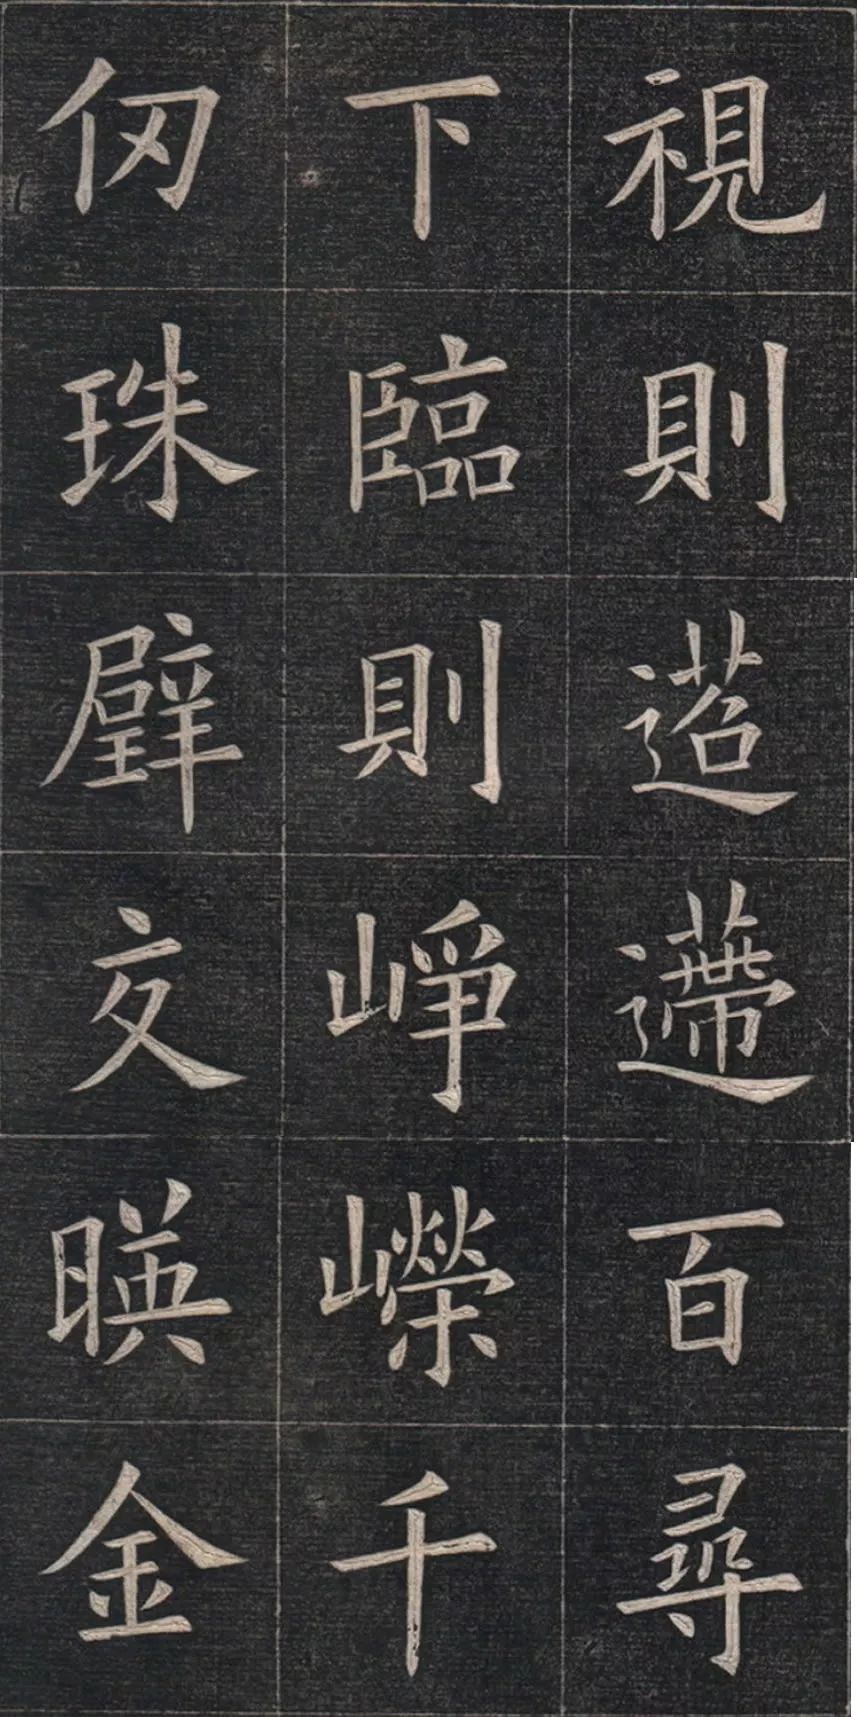 視則迢遰百尋
下臨則崢嶸千
仞珠璧交暎金